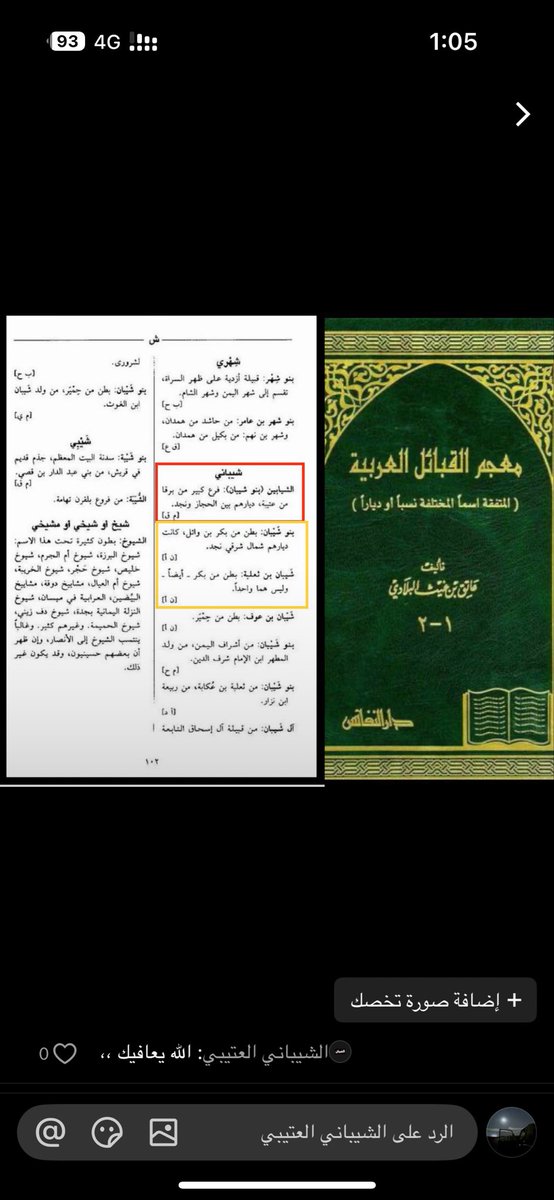 1:05
4G
93
ش
شِهْري
بنو شهر: قبيلة أزدية على ظهر السراة،
تقسم إلى شهر اليمن وشهر الشام.
[ب ح]
بنو شهر بن عامر: من حاشد من همدان،
وشهر بن نهم: من بكيل من همدان.
[ق ع]
شيباني
الشيابين (بنو شيبان): فرع كبير من برقا
من عتيبة، ديارهم بين الحجاز ونجد.
[م ق]
بنو شَيْبان: بطن من بكر بن وائل، كانت
ديارهم شمال شرقي نجد.
[ن أ]
شَيبان بن ثعلبة: بطن من بكر ـ أيضاً ـ
وليس هما واحداً.
[ن أ]
شَيْبان بن عوف: بطن من حِمْيَر.
[ن أ]
بنو شَيْبان: من أشراف اليمن، من ولد
المطهر ابن الإمام شرف الدين.
[م ح]
بنو شَيْبان: من ثعلبة بن عُكابة، من ربيعة
ابن نزار.
[أ د]
آل شَيْبان: من قبيلة آل إسحاق التابعة
لشرورى.
[ب ح]
بنو شَيْبان: بطن من حِمْيَر، من ولد شَيبان
ابن الغوث.
[م ي]
شَيْبي
بنو شَيْبة: سدنة البيت المعظم، جذم قديم
في قريش، من بني عبد الدار بن قصي.
[م ق]
الشَّيَبَة: من فروع بلقرن تهامة.
شيخ أو شيخي أو مشيخي
الشيوخ: بطون كثيرة تحت هذا الاسم:
شيوخ البرزة، شيوخ أم الجرم، شيوخ
خليص، شيوخ حَجْر، شيوخ الخريبة،
شيوخ أم العيال، مشايخ دوقة، مشايخ
البيْضين، العرابية في ميسان، شيوخ
النزلة اليمانية بجدة، شيوخ دف زيني،
شيوخ الحميمة. وغيرهم كثير. وغالباً
ينتسب الشيوخ إلى الأنصار، وإن ظهر
أن بعضهم حسينيون، وقد يكون غير
ذلك.
١٠٢
معجم القبائل العربية
( المتفقة اسماً المختلفة نسباً أو دياراً )
تأليف
عاتق بن غيث البلادي
١-٢
دار النفائس
+ إضافة صورة تخصك
الشيباني العتيبي: الله يعافيك ،،
0
الرد على الشيباني العتيبي
@